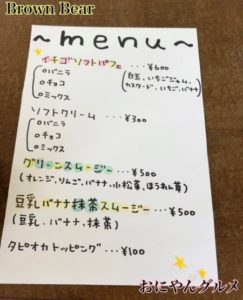 Brown Bear
~menu~
イチゴソフトパフェ … ¥600
oバニラ
oチョコ
oミックス
(白玉、いちごジャム、
カスタード、いちご、バナナ)
ソフトクリーム … ¥300
oバニラ
oチョコ
oミックス
グリーンスムージー … ¥500
(オレンジ、りんご、バナナ、小松菜、ほうれん草)
豆乳バナナ抹茶スムージー … ¥500
(豆乳、バナナ、抹茶)
タピオカトッピング … ¥100
おにやんグルメ